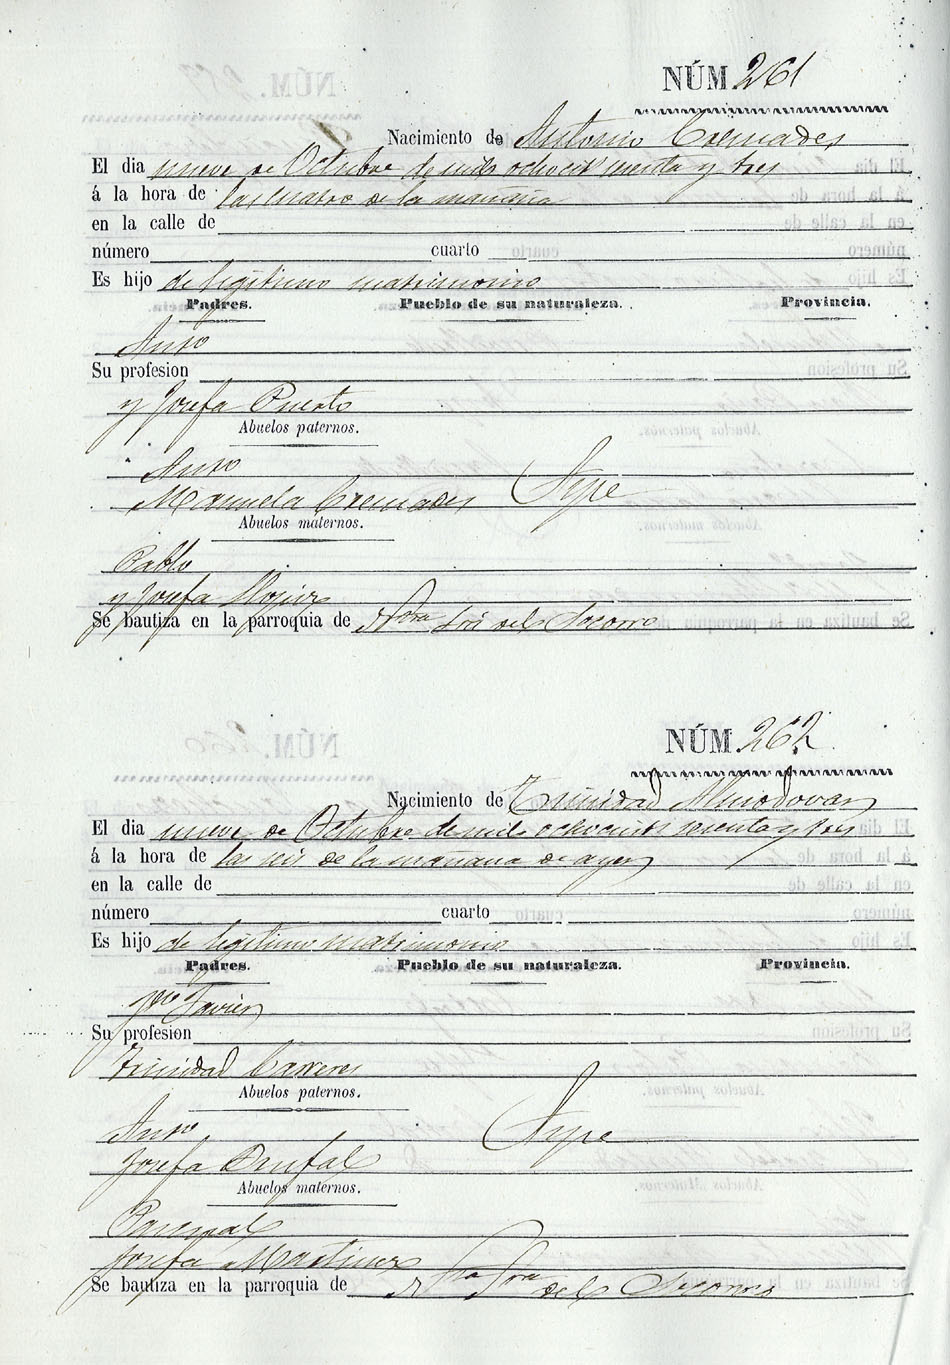 NÚM. 261
Nacimiento de Antonio Cremades
El dia nueve de Octubre de mil ochocits. senta y tres
á la hora de las cuatro de la mañana
en la calle de
número cuarto
Es hijo de legitimo matrimonio
Padres. Pueblo de su naturaleza. Provincia.
Anto
Su profesion
y Josefa Puerto
Abuelos paternos.
Anto
Manuela Cremades Aspe
Abuelos maternos.
Pablo
y Josefa
Se bautiza en la parroquia de Ntra Sra del Socorro
NÚM. 262
Nacimiento de Trinidad Almodovar
El dia nueve de Octubre de mil ochocits senta y tres
á la hora de las seis de la mañana de ayer
en la calle de
número cuarto
Es hijo de legitimo matrimonio
Padres. Pueblo de su naturaleza. Provincia.
Javier
Su profesion
Trinidad Carreres
Abuelos paternos.
Anto Aspe
Josefa
Abuelos maternos.
Pascual
Josefa Martinez
Se bautiza en la parroquia de Ntra Sra del Socorro